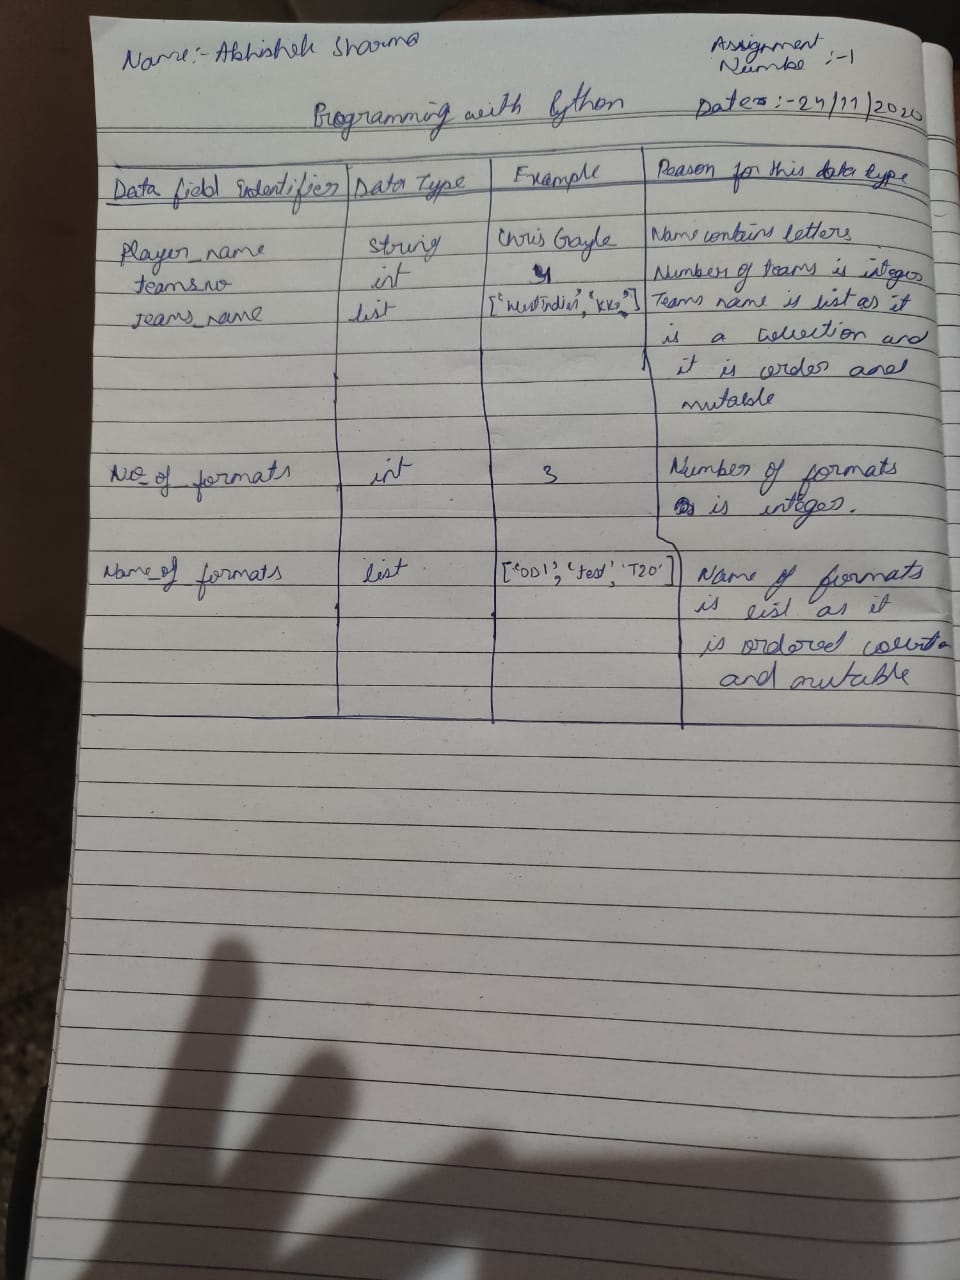 Name:- Abhishek Sharma
Assignment
Numbe :-1
Programming with Python
Date :- 24/11/2020
Data field Indentifier Data Type Example Reason for this data type
Player_name string Chris Gayle Name contains letters
teams_no int 4 Number of teams is integer
Teams_name list ['West Indies', 'KKR'] Teams name is list as it
is a collection and
it is order and
mutable
No_of formats int 3 Number of formats
is integer.
Name_of formats list ['ODI', 'Test', 'T20'] Name of formats
is list as it
is ordered
and mutable